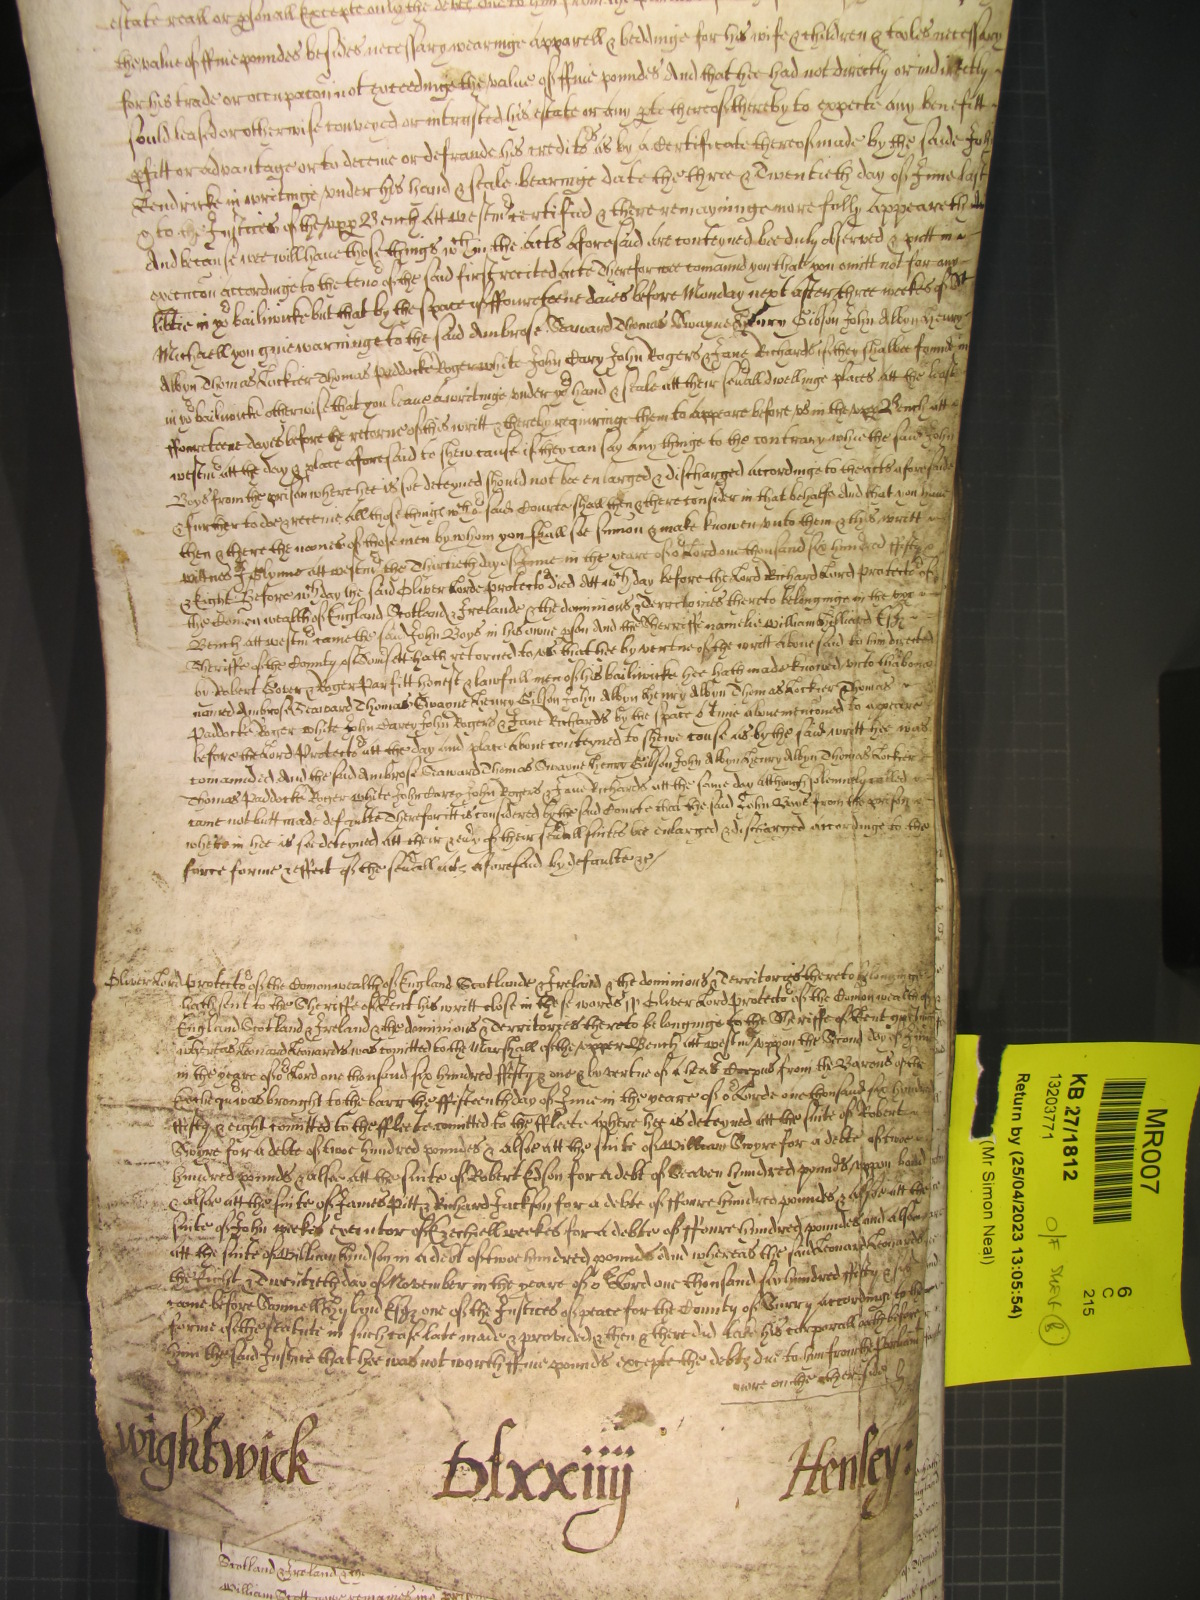 estate reall or psonall Excepte only the debte due to him from the
the value of ffive poundes besides necessary wearinge apparell & beddinge for his wife & children & tooles necessary
for his trade or occupacon not exceedinge the value of ffive poundes And that hee had not directly or indirectly
sould leased or otherwise conveyed or intrusted his estate or any pte thereof thereby to expecte any benefitt
pfitt or advantage or to deceive or defraude his creditors as by a Certificate thereof made by the saide John
Kendricke in writinge under his hand & seale bearinge date the three & Twentieth day of June last
& to the Justices of the upp Bench att westmr certified & there remayninge more fully appeareth
And because wee will have those things wch in the acts aforesaid are conteyned bee duly observed & putt in
execucon accordinge to the tenor of the said first recited acte Therefore wee comaund you that you omitt not for any
libtie in yor bailiwicke but that by the space of ffoureteene daies before Monday next after three weekes of St
Michaell you give warninge to the said Ambrose Seaward Thomas Swayne Henry Gibson John Albyn Henry
Albyn Thomas Lockier Thomas Paddocke Roger white John Cary John Rogers & Jane Richards if they shalbee found in
in yor bailiwicke otherwise that you leave a writinge under yor hand & seale att their sevall dwellinge places att the least
ffoureteene dayes before the retorne of this writt & thereby requiringe them to appeare before us in the upp Bench att
westmr att the day & place aforesaid to shew cause if they can say any thinge to the contrary why the said John
Boys from the prison where hee is soe deteyned should not bee enlarged & discharged accordinge to the acts aforesaide
& further to doe & receive all those things wch or said Courte shall then & there consider in that behalfe And that you have
then & there the names of those men by whom you shall soe sumon & make knowen unto them & this writt
witnes J Glynne att westmr the Thirtieth day of June in the yeare of or Lord one thousand six hundred ffifty
& Eight Before wch day the said Oliver Lorde protector died Att wch day before the Lord Richard Lord protector of
the Comon wealth of England Scotland & Irelande & the dominions & Territories thereto belonginge in the upp
Bench att westmr came the said John Boys in his owne pson And the Sherriffe namelie William Hilliard Esqr
Sheriffe of the County of Somsett hath retorned to us that hee by vertue of the writt above said to him directed
by Robert Gover & Roger Parfitt honest & lawfull men of his bailiwicke hee hath made knowen unto the above
named Ambrose Seaward Thomas Swayne Henry Gibson John Albyn Henry Albyn Thomas Lockier Thomas
Paddocke Roger white John Carey John Rogers & Jane Richards by the space of time abovemenconed to appeare
before the Lord Protector att the day and place above conteyned to shewe cause as by the said writt hee was
comaunded And the said Ambrose Seaward Thomas Swayne Henry Gibson John Albyn Henry Albyn Thomas Lockier
Thomas Paddocke Roger white John Carey John Rogers & Jane Richards att the same day although solemnely called
came not butt made defaulte Therefore itt is considered by the said Courte that the said John Boys from the prison
wherein hee is soe deteyned att their & evy of their sevall suites bee enlarged & discharged accordinge to the
force forme & effect of the sevall acts aforesaid by defaulte &c/
Oliver Lord Protector of the Comonwealth of England Scotlande & Ireland & the dominions & Territories thereto belonginge
hath sent to the Sheriffe of Kent his writt close in these words Oliver Lord protector of the Comon wealth of
England Scotland & Ireland & the dominions & Territories thereto belonginge to the Sheriffe of Kent greetinge
whereas Leonard Leonards was comitted to the Marshall of the upper Bench att westmr uppon the Second day of June
in the yeare of or Lord one thousand six hundred ffifty & one & by vertue of a Heas Corpus from the Barons of the
Excheqr was brought to the barr the ffifteenth day of June in the yeare of or Lorde one thousand six hundred
ffifty & eight comitted to the ffleete comitted to the ffleete where hee is deteyned att the suite of Robert
Swyre for a debte of twoe hundred poundes & alsoe att the suite of William Swyre for a debte of twoe
hundred pounds & alsoe att the suite of Robert Edson for a debt of Seaven hundred pounds uppon bond
& alsoe att the suite of James Pitt & Richard Jackson for a debte of ffoure hundred poundes & alsoe att the
suite of John weekes executor of Ezechell weekes for a debte of ffoure hundred poundes and alsoe
att the suite of William Kindson in a debt of twoe hundred poundes And whereas the said Leonard Leonards
the Eight & Twentieth day of November in the yeare of or Lord one thousand six hundred ffifty &
came before Samuell Hyland Esqr one of the Justices of peace for the County of Surry accordinge to the
forme of the statute in such case late made & provided & then & there did take his corporall oath before
him the said Justice that hee was not worth ffive pounds excepte the debts due to him from the Parliamt
more on the other side
Wightwick Dlxxiiij Henley:
Scotland & Ireland & the
William Scott
MR007
6
C
215
KB 27/1812
13203771
Return by (25/04/2023 13:05:54)
(Mr Simon Neal)